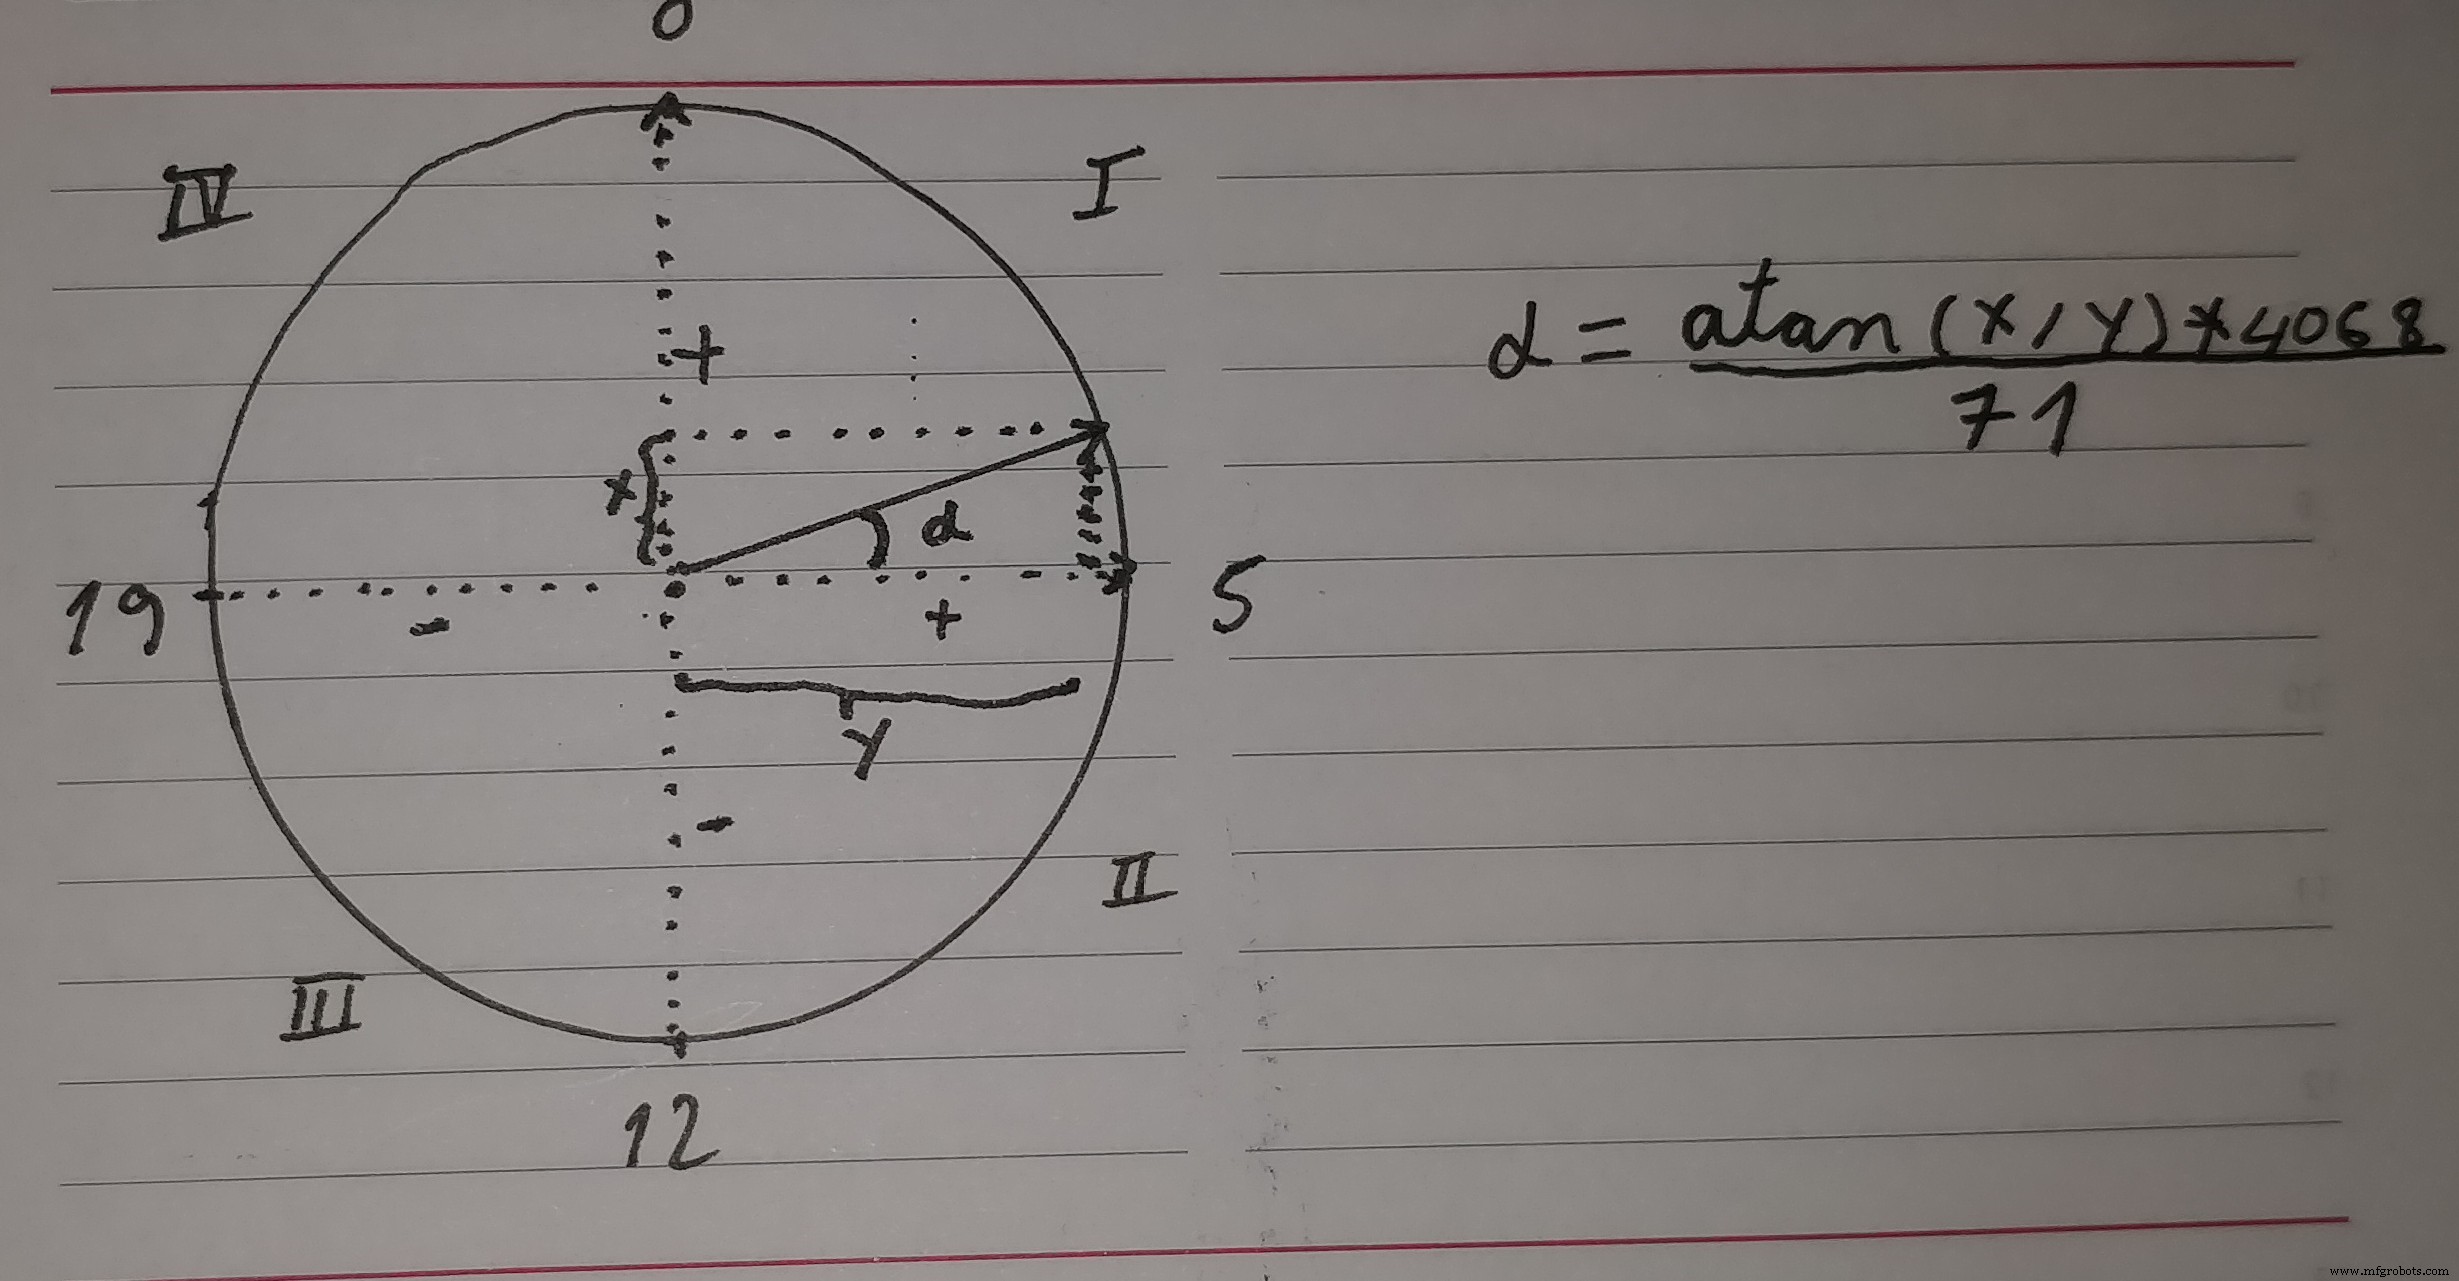 0
IV
I
+
α = atan(x/y)*4068
71
x
α
19
-
+
5
y
-
II
III
12
www.mfgrobots.com